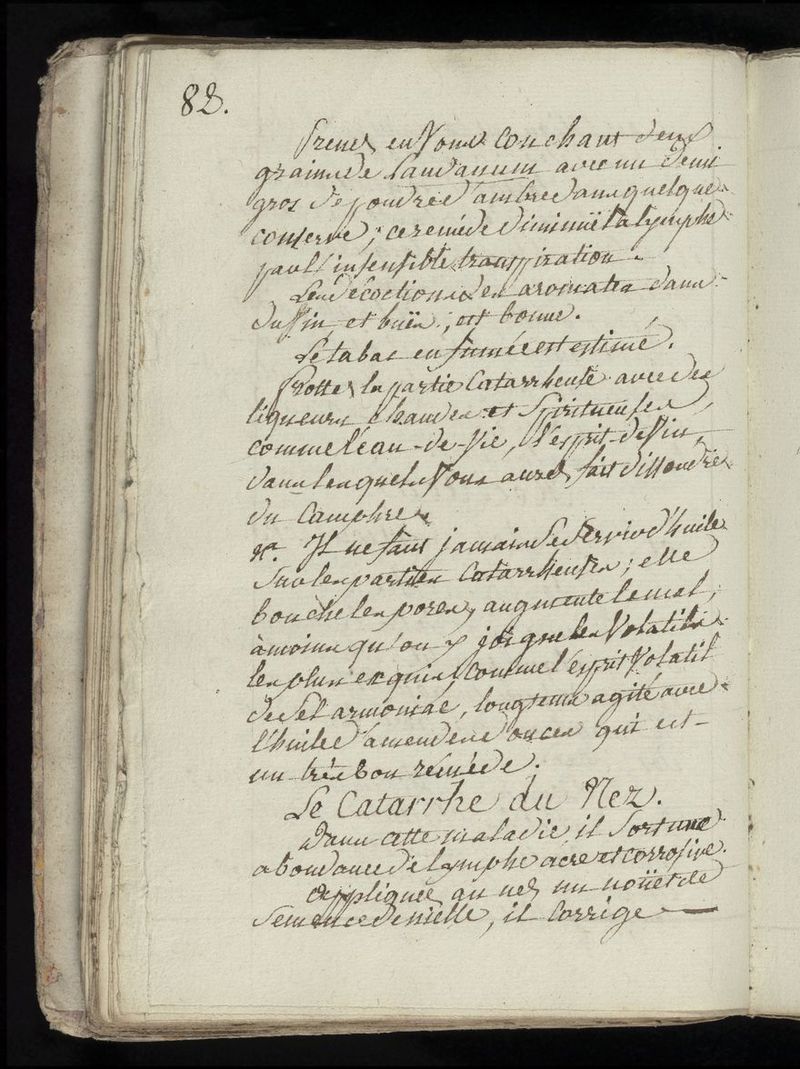 88.
Prenez en Vous Couchant deux
grains de Laudanum avec un demi
gros de poudre d'ambre dans quelque
conserve ; ce reméde diminuë la lymphe
par l'insensible transpiration.
Les décoctions des aromates dans
du Vin, et buës ; est bonne.
Le tabac en fumée est estimé.
Frottez la partie Catarrheuse avec des
liqueurs chaudes et Spiritueuses,
comme l'eau-de-Vie, l'esprit-de Vin,
dans lesquels Vous aurez fait dissoudre
du Camphre.
Nta. Il ne faut jamais Se Servir d'huile
Sur les parties Catarrheuses ; elle
bouche les pores, augmente le mal,
à moins qu'on y joigne les Volatils
les plus exquis, comme l'esprit Volatil
de Sel armoniac, longtems agité avec
l'huile d'amendes douces qui est
un très bon reméde.
Le Catarrhe du Nez.
Dans cette maladie il Sort une
abondance de lymphe âcre et corrosive.
Appliquez au nez un noüet de
Semence de nielle, il Corrige